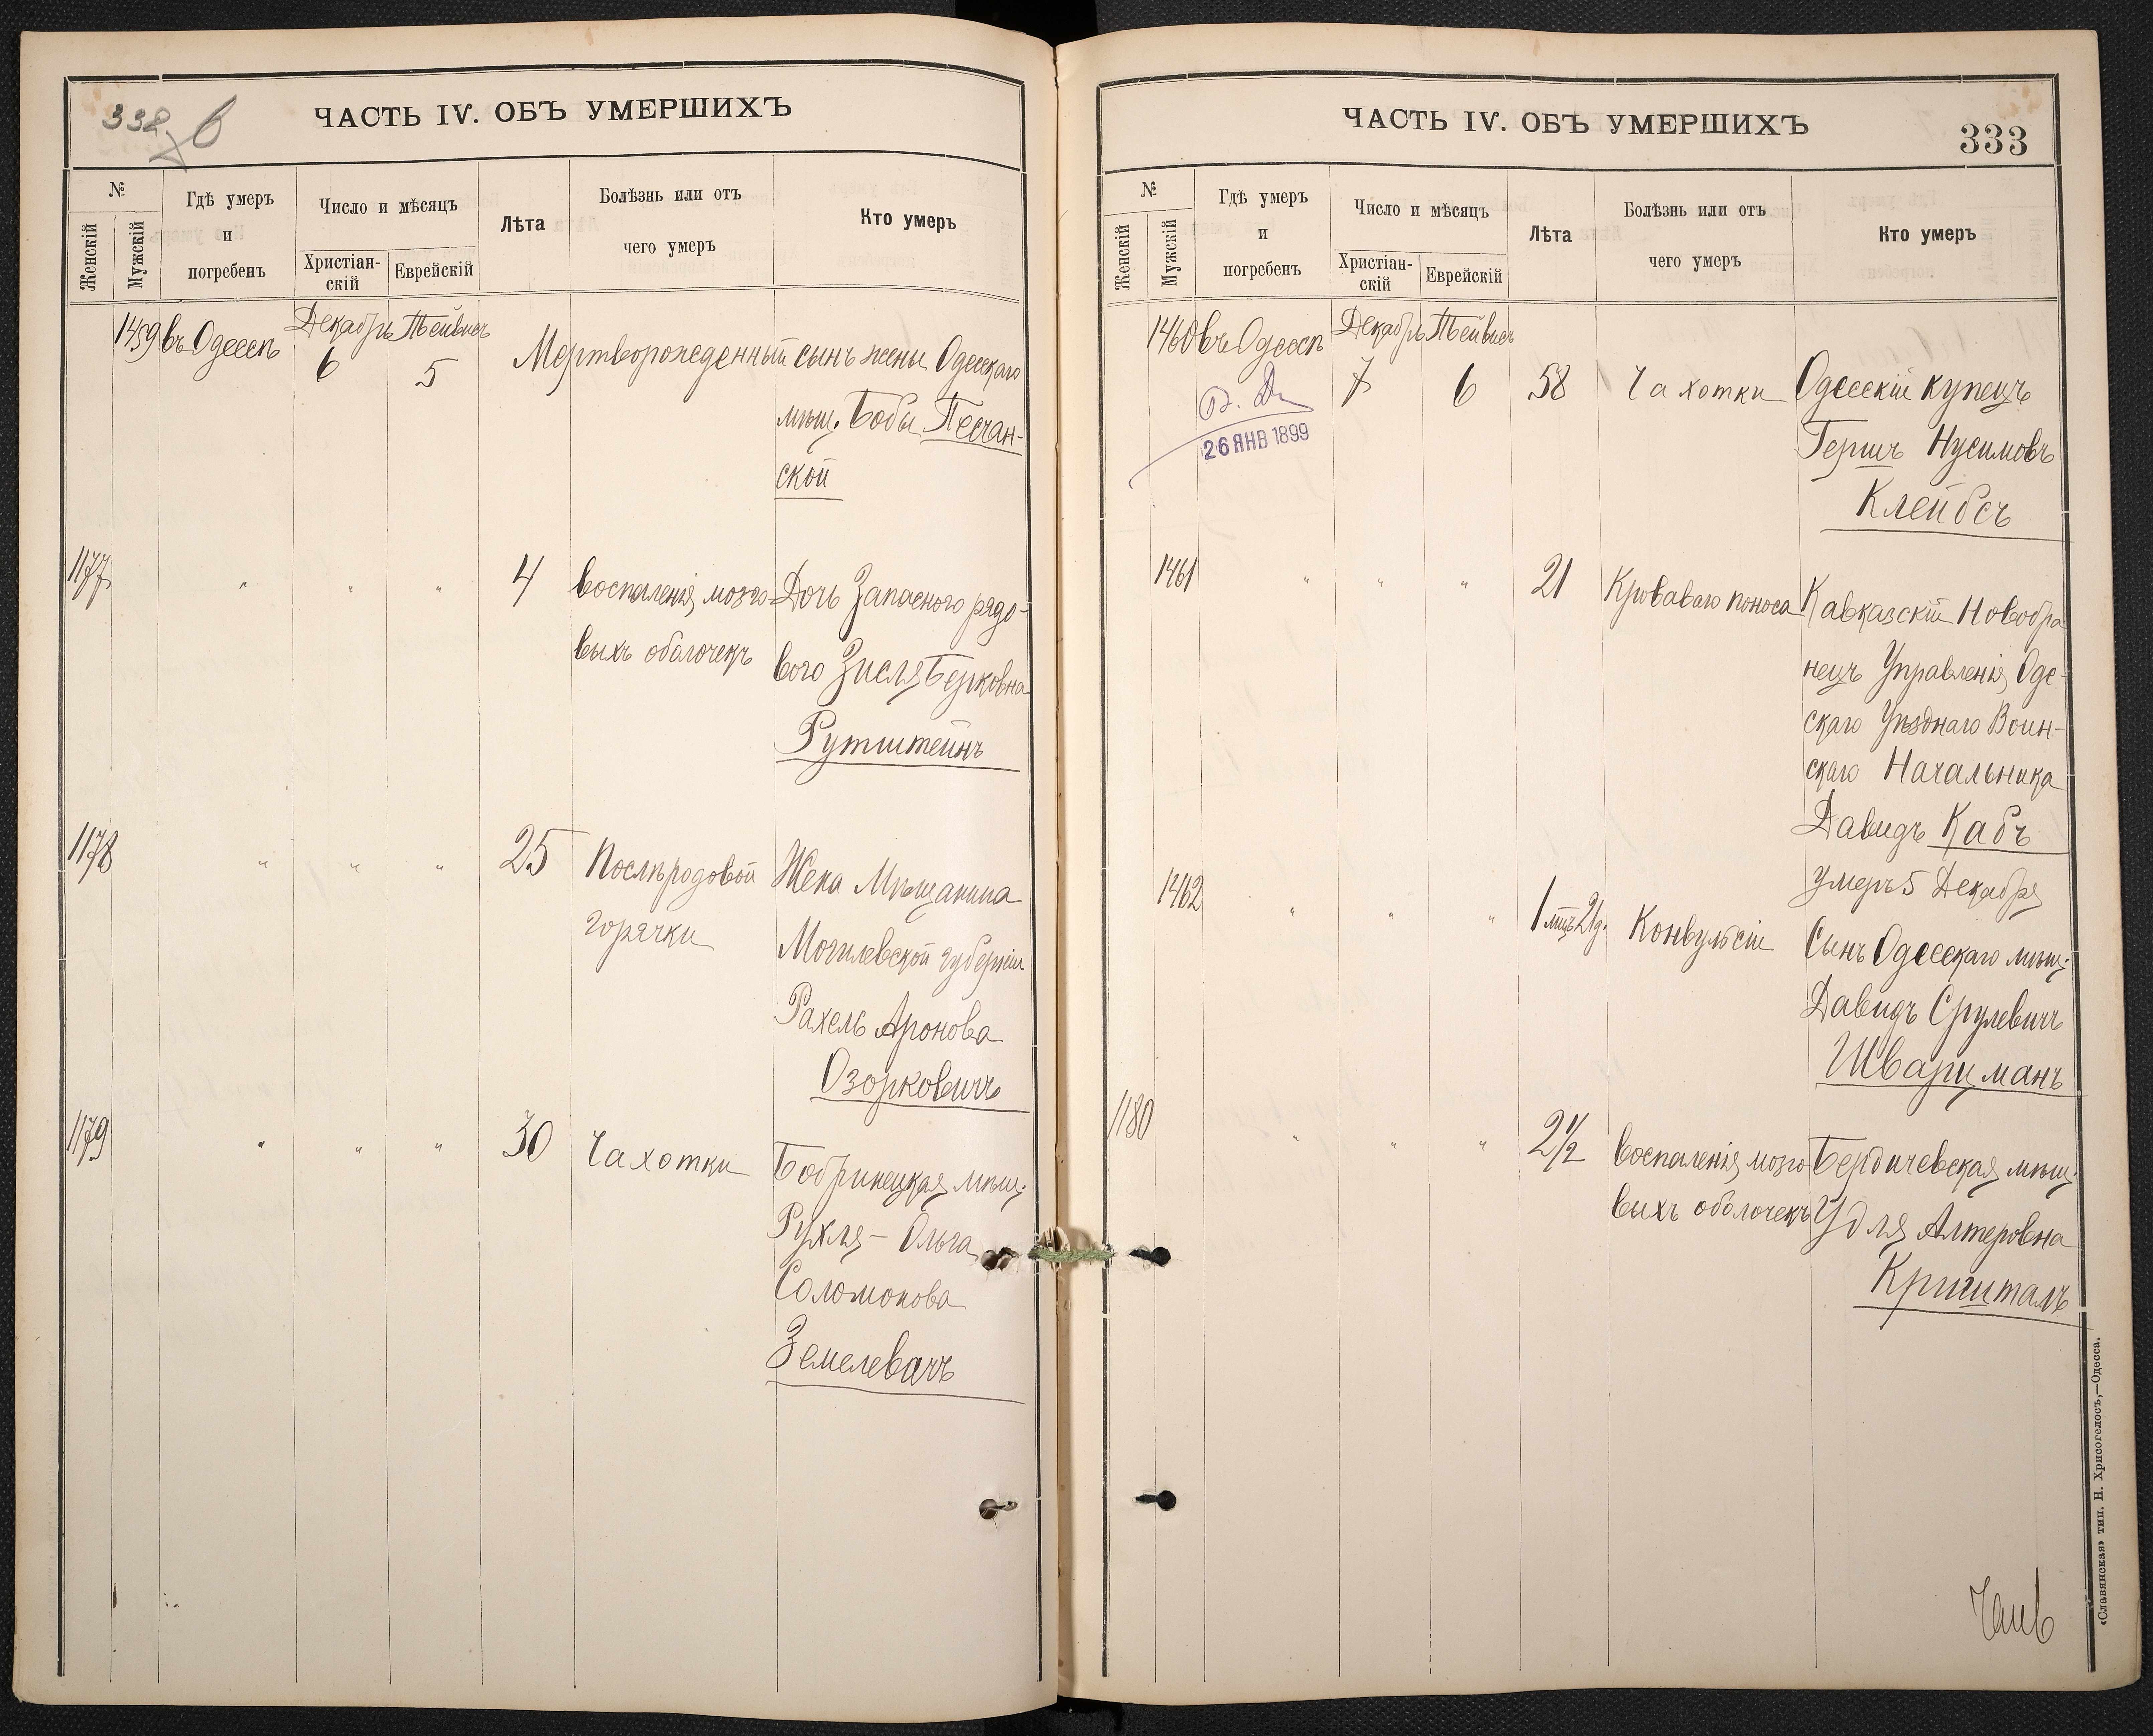 338 б
ЧАСТЬ IV. ОБЪ УМЕРШИХЪ
№
Женскій
Мужскій
Гдѣ умеръ
и
погребенъ
Число и мѣсяцъ
Христіан-
скій
Еврейскій
Лѣта
Болѣзнь или отъ
чего умеръ
Кто умеръ
1459 въ Одессѣ Декабрь 6 Тейвисъ 5 Мертворожденный сынъ жены Одесскаго
мѣщ. Бобы Песчан-
ской
1177 " " " 4 Воспаленія мозго- Дочь Запаснаго рядо-
выхъ оболочекъ вого Зисля Берковна
Рутштейнъ
1178 " " " 25 Послѣродовой Жена Мѣщанина
горячки Могилевской губерніи
Рахель Аронова
Озорковичъ
1179 " " " 30 Чахотки Бобринецкая мѣщ.
Рухля - Ольга
Соломонова
Земелевачъ
ЧАСТЬ IV. ОБЪ УМЕРШИХЪ
333
№
Женскій
Мужскій
Гдѣ умеръ
и
погребенъ
Число и мѣсяцъ
Христіан-
скій
Еврейскій
Лѣта
Болѣзнь или отъ
чего умеръ
Кто умеръ
1460 въ Одессѣ Декабрь 7 Тейвисъ 6 58 Чахотки Одесскій купецъ
Гершъ Нусимовъ
Клейбсъ
26 ЯНВ 1899
1461 " " " 21 Кроваваго поноса Кавказскій Новобра
нецъ Управленія Оде-
скаго Уѣзднаго Воин-
скаго Начальника
Давидъ Кабъ
умеръ 5 Декабря
1462 " " " 1 мѣц. 21 д. Конвульсіи Сынъ Одесскаго мѣщ.
Давидъ Срулевичъ
Шварцманъ
1180 " " " 2 1/2 Воспаленія мозго Бердичевская мѣщ.
выхъ оболочекъ Удля Алтеровна
Кришталъ
«Славянская» тип. Н. Хрисогелосъ,—Одесса.